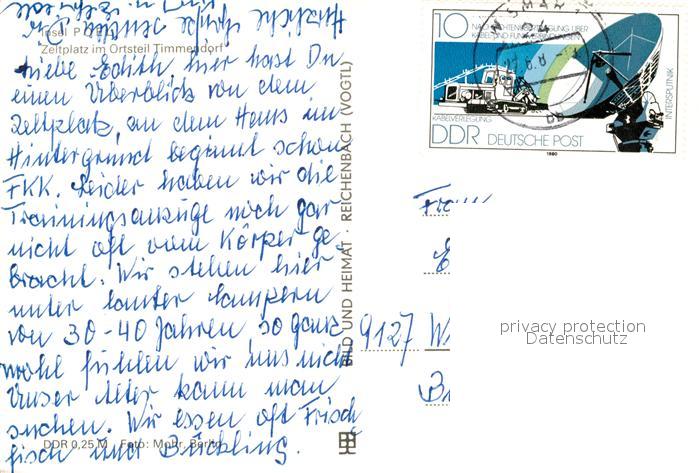 Herzliche Grüße
Insel P
Zeltplatz im Ortsteil Timmendorf
Liebe Edith hier hast Du
einen Überblick von dem
Zeltplatz, an dem Haus im
Hintergrund beginnt schon
FKK. Leider haben wir die
Trainingsanzüge noch gar
nicht oft vom Körper ge-
bracht. Wir stehen hier
unter lauter Campern
von 30-40 Jahren, so ganz
wohl fühlen wir uns nicht
Unser Alter kann man
suchen. Wir essen oft Frisch
fisch und Bückling.
DDR 0,25 M Foto: Mohr, Berlin
BILD UND HEIMAT · REICHENBACH (VOGTL)
10
KABELVERLEGUNG
INTERSPUTNIK
DDR DEUTSCHE POST
1980
Frau
9127 W
privacy protection
Datenschutz